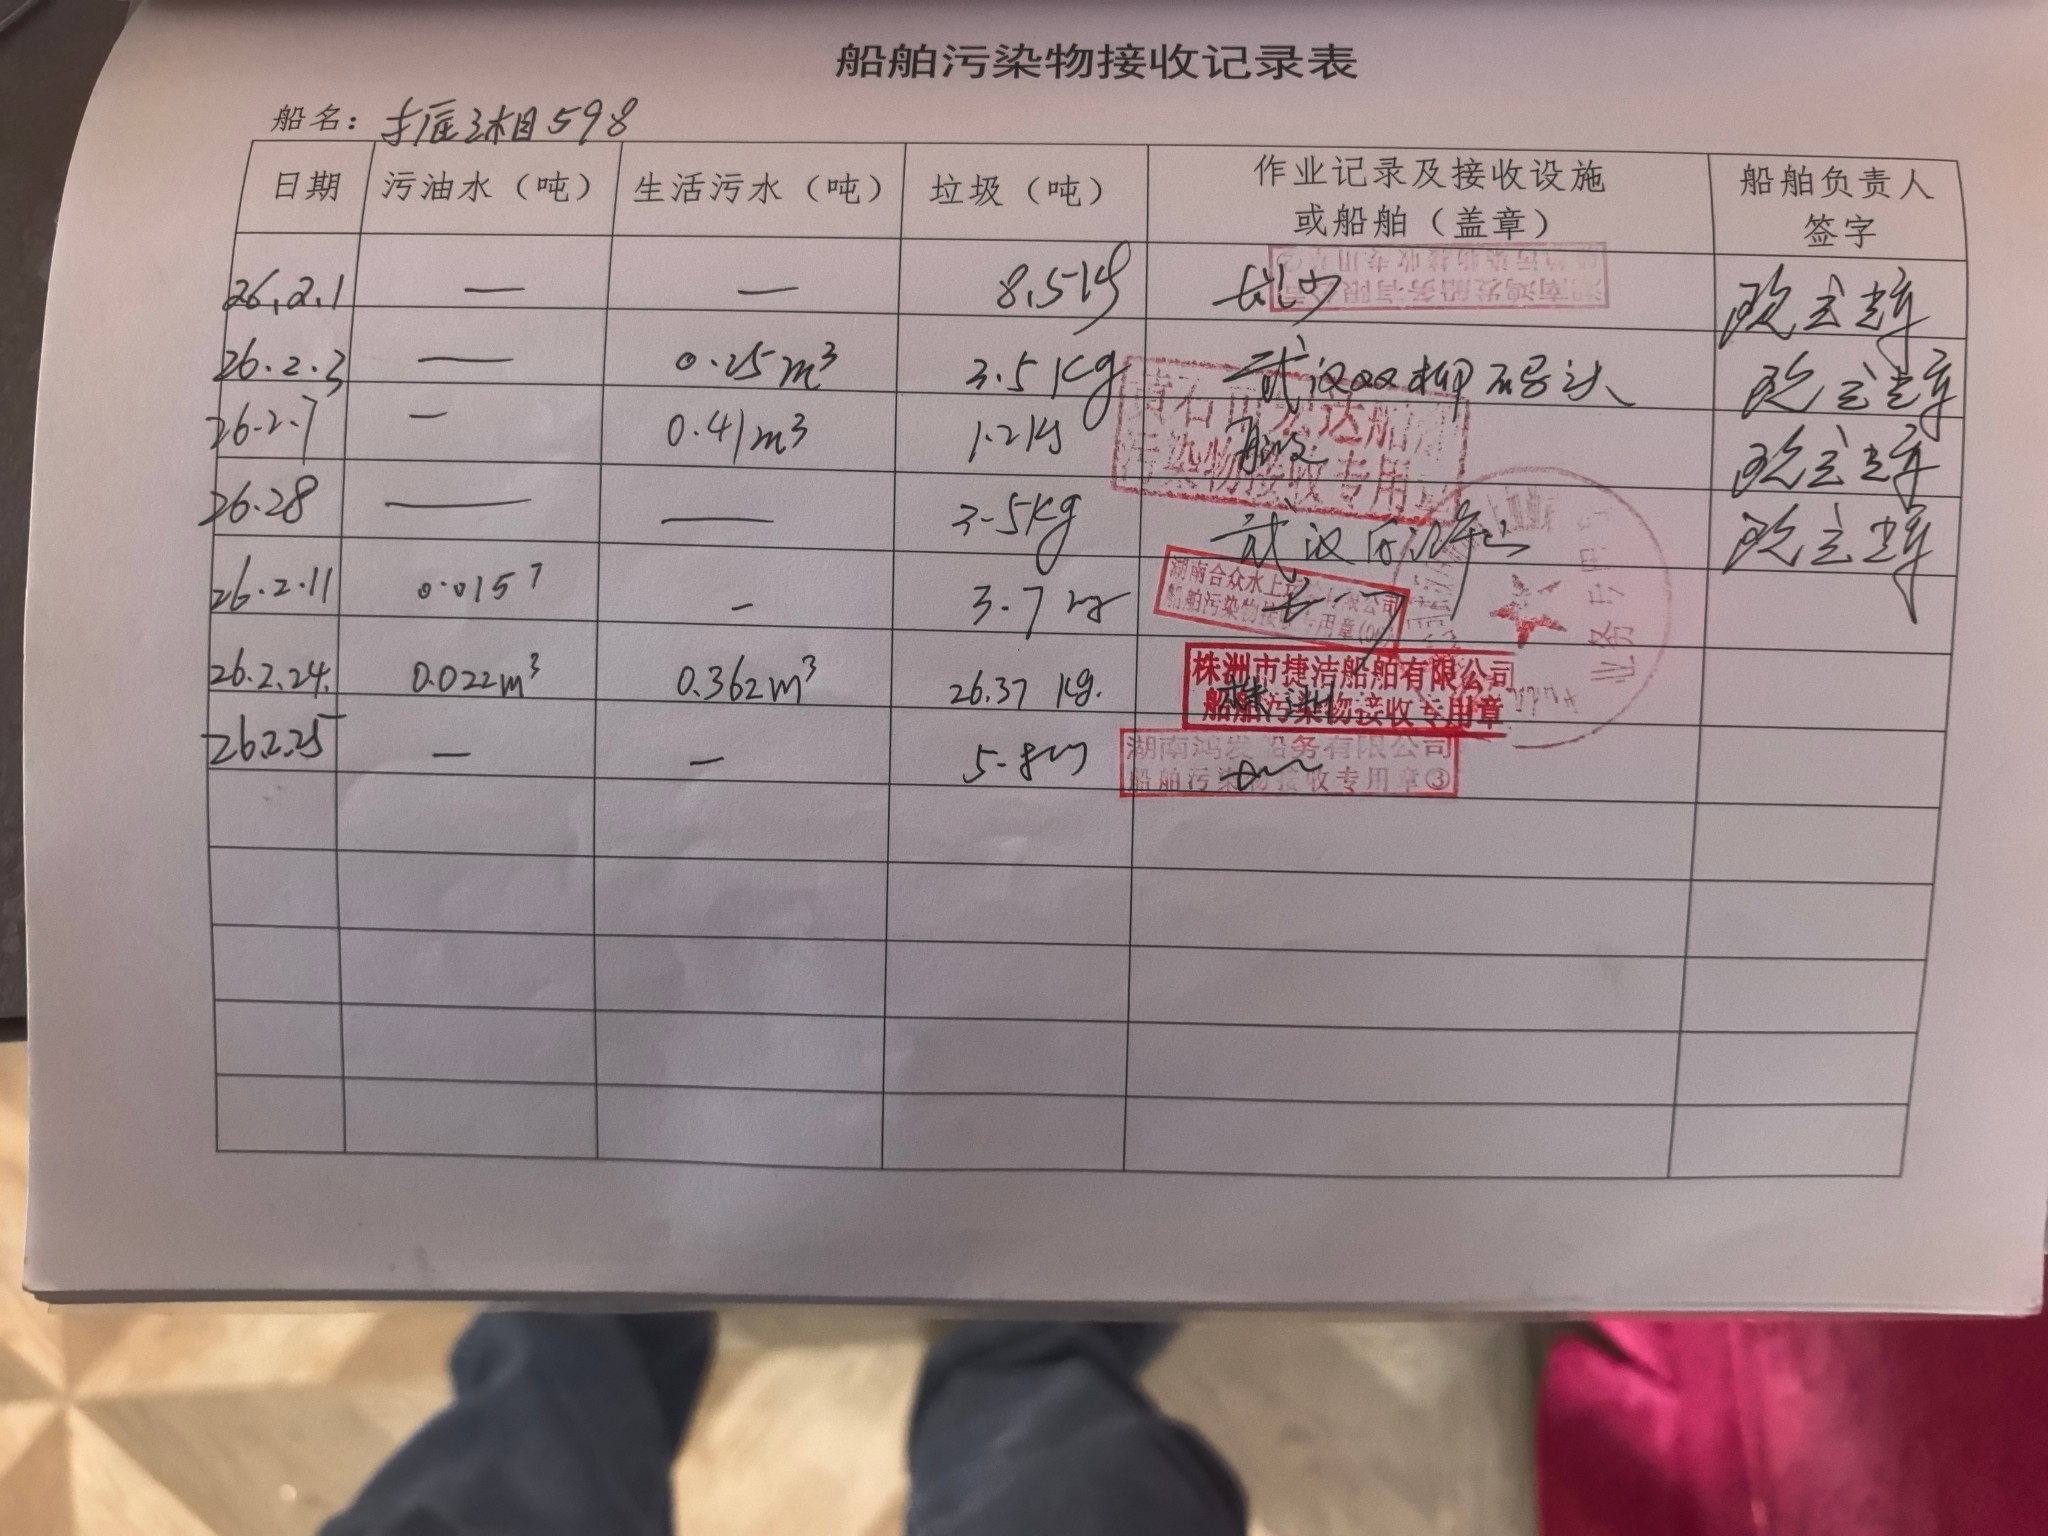 船舶污染物接收记录表
船名： 598
日期 污油水（吨） 生活污水（吨） 垃圾（吨） 作业记录及接收设施或船舶（盖章） 船舶负责人签字
26.2.1 — — 8.5kg 长沙
湖南鸿发船务有限公司
船舶污染物接收专用章②
26.2.3 — 0.25m³ 3.5Kg 武汉双柳码头
26.2.7 — 0.41m³ 1.2kg
黄石市宏达船
污染物接收专用章
26.28 — — 3.5Kg 武汉
26.2.11 0.015T — 3.7kg
湖南合众水上 有限公司
船舶污染物接收专用章
业务专用
26.2.24. 0.022m³ 0.362m³ 26.37 Kg. 株洲
株洲市捷洁船舶有限公司
船舶污染物接收专用章
26.2.25 — — 5.8kg
湖南鸿发船务有限公司
船舶污染物接收专用章③